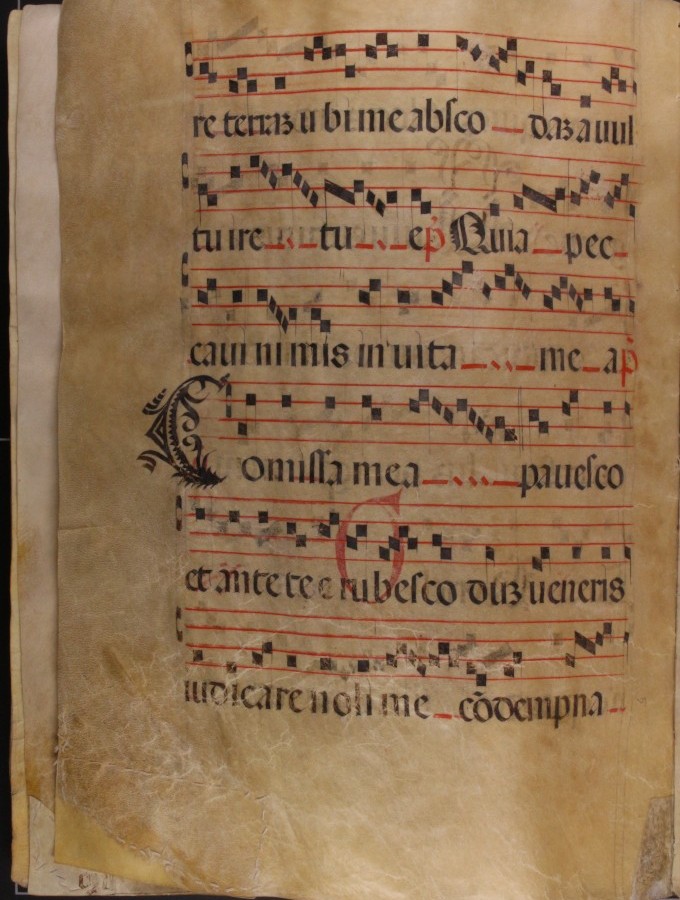 re terraꝫ u bi me absco daꝫ a uul
tu ire tu e p̄ Quia pec
caui ni mis in uita me a p̄
Comissa mea pauesco
et ante te e rubesco duꝫ ueneris
iudicare noli me cōdempna